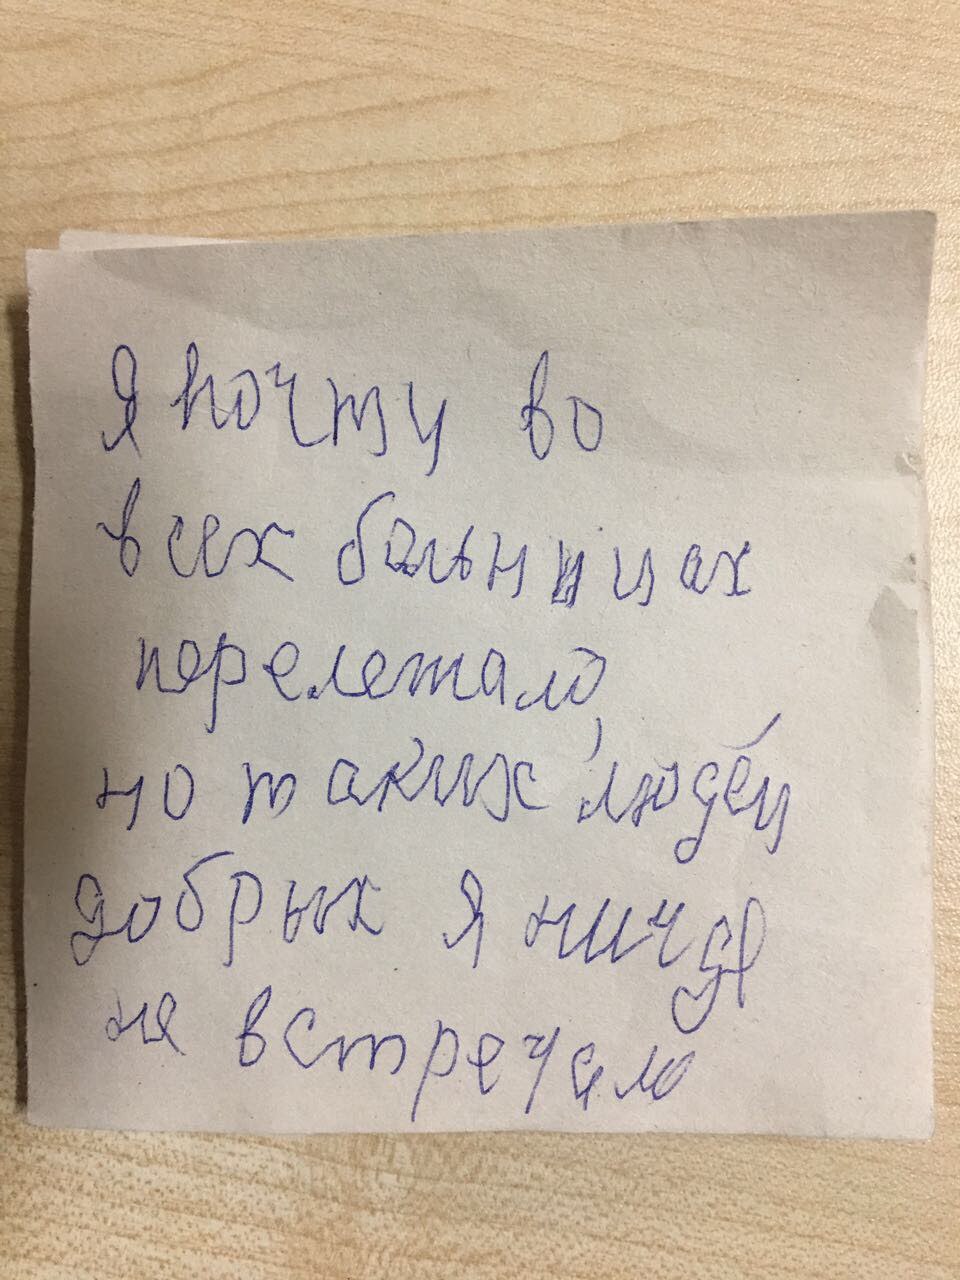 Я почти во
всех больницах
перележало,
но таких людей
добрых я нигде
не встречало